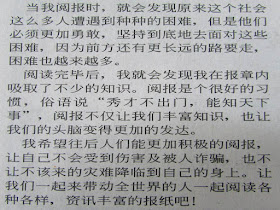 当我阅报时，就会发现原来这个社会
这么多人遭遇到种种的困难，但是他们
必须更加勇敢，坚持到底地去面对这些
困难，因为前方还有更长远的路要走，
困难也越来越多。
阅读完毕后，我就会发现我在报章内
吸取了不少的知识。阅报是个很好的习
惯，俗语说“秀才不出门，能知天下
事”，阅报不仅让我们丰富知识，也让
我们的头脑变得更加的发达。
我希望往后人们能更加积极的阅报，
让自己不会受到伤害及被人诈骗，也不
让不该来的灾难降临到自己的身上。让
我们一起来带动全世界的人一起阅读各
种各样，资讯丰富的报纸吧！